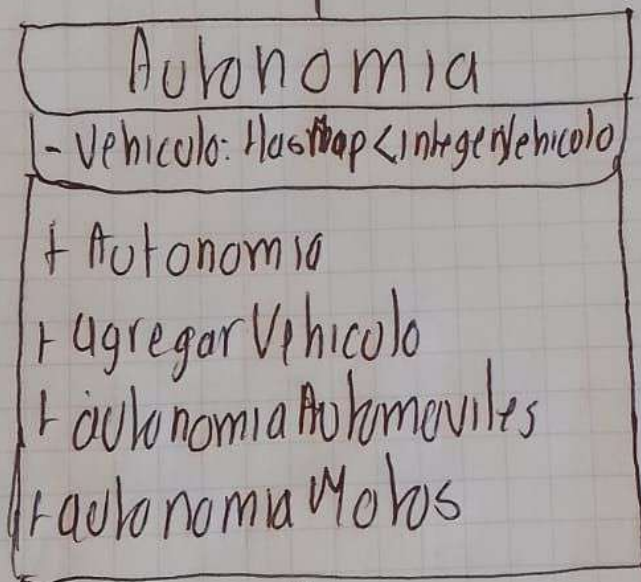 Autonomia
- Vehiculo: HasMap<integer,Vehicolo
+ Autonomia
+ agregarVehiculo
+ autonomiaAutomoviles
+ autonomiaMotos